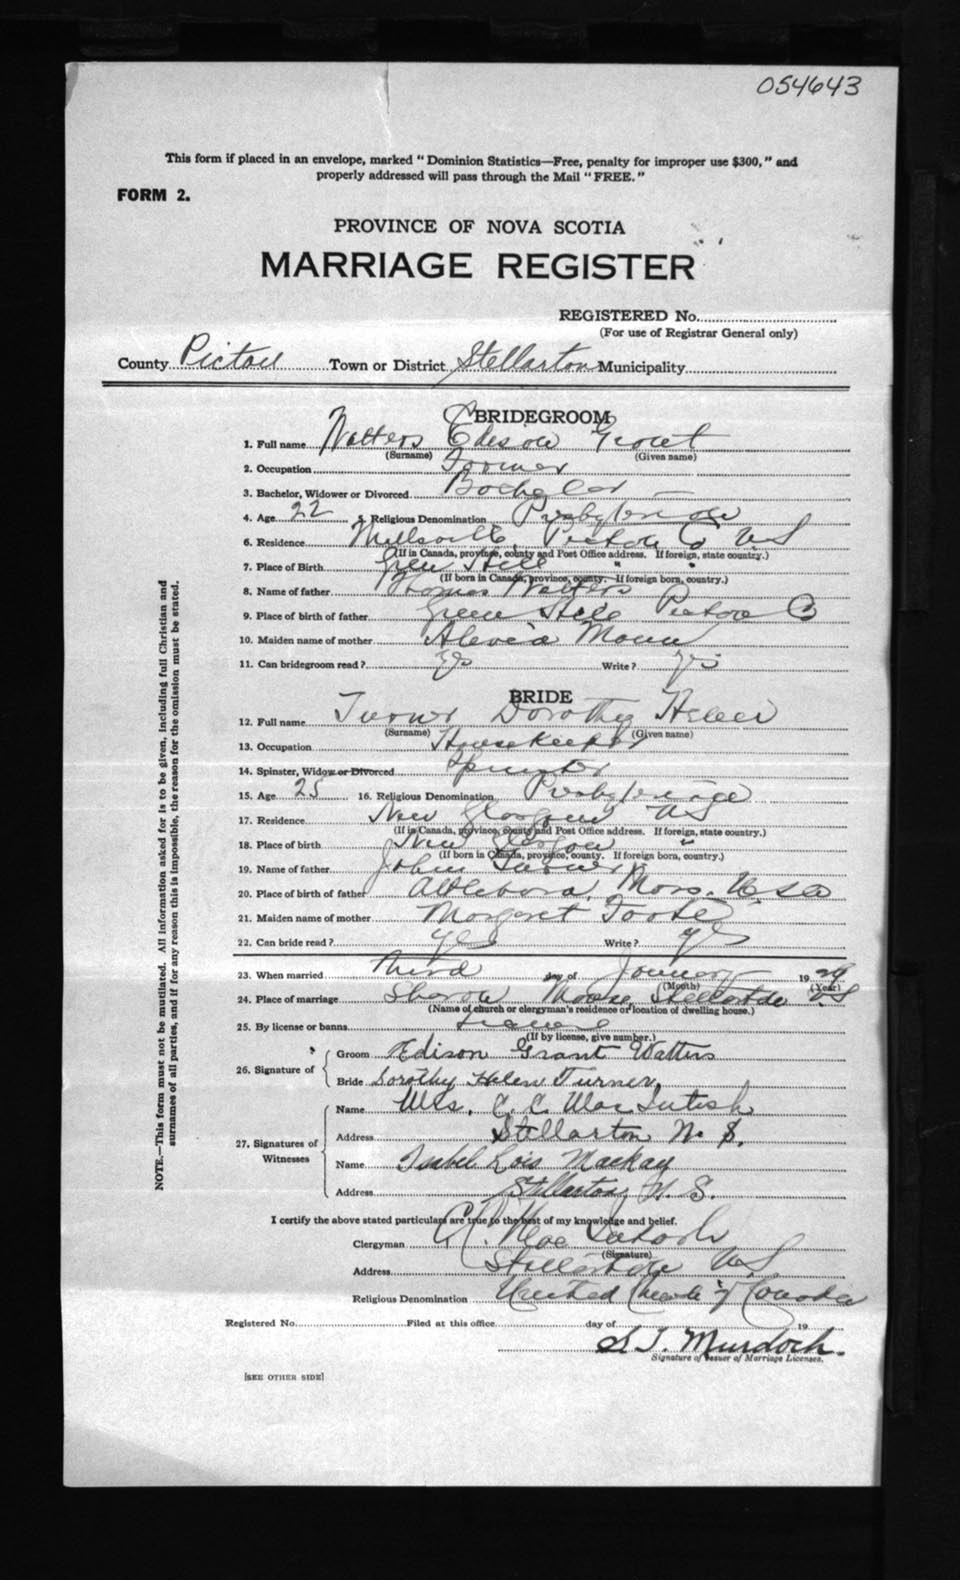 054643
This form if placed in an envelope, marked "Dominion Statistics—Free, penalty for improper use $300," and
properly addressed will pass through the Mail "FREE."
FORM 2.
PROVINCE OF NOVA SCOTIA
MARRIAGE REGISTER
REGISTERED No.
(For use of Registrar General only)
County Pictou Town or District Stellarton Municipality
BRIDEGROOM
1. Full name Watters Edison Grant
(Surname) (Given name)
2. Occupation Farmer
3. Bachelor, Widower or Divorced Bachelor
4. Age 22 5. Religious Denomination Presbyterian
6. Residence Millsville Pictou Co NS
(If in Canada, province, county and Post Office address. If foreign, state country.)
7. Place of Birth Green Hill " "
(If born in Canada, province, county. If foreign born, country.)
8. Name of father Thomas Watters
9. Place of birth of father Green Hill Pictou Co
10. Maiden name of mother
11. Can bridegroom read? yes Write? yes
BRIDE
12. Full name Turner Dorothy Helen
(Surname) (Given name)
13. Occupation Housekeeper
14. Spinster, Widow or Divorced Spinster
15. Age 25 16. Religious Denomination Presbyterian
17. Residence New Glasgow NS
(If in Canada, province, county and Post Office address. If foreign, state country.)
18. Place of birth New Glasgow "
(If born in Canada, province, county. If foreign born, country.)
19. Name of father John Turner
20. Place of birth of father Attleboro, Mass. USA
21. Maiden name of mother Margaret Foote
22. Can bride read? yes Write? yes
23. When married Third day of January 1929
(Month) (Year)
24. Place of marriage Sharon Manse, Stellarton NS
(Name of church or clergyman's residence or location of dwelling house.)
25. By license or banns License
(If by license, give number.)
26. Signature of
Groom Edison Grant Watters
Bride Dorothy Helen Turner
27. Signatures of Witnesses
Name Mrs. C. C. MacIntosh
Address Stellarton N. S.
Name Isabel Lois MacKay
Address Stellarton, N. S.
I certify the above stated particulars are true to the best of my knowledge and belief.
Clergyman C. C. MacIntosh
(Signature)
Address Stellarton NS
Religious Denomination United Church of Canada
Registered No. Filed at this office day of 19
S J. Murdoch.
Signature of Issuer of Marriage Licenses.
[SEE OTHER SIDE]
NOTE.—This form must not be mutilated. All information asked for is to be given, including full Christian and
surnames of all parties, and if for any reason this is impossible, the reason for the omission must be stated.